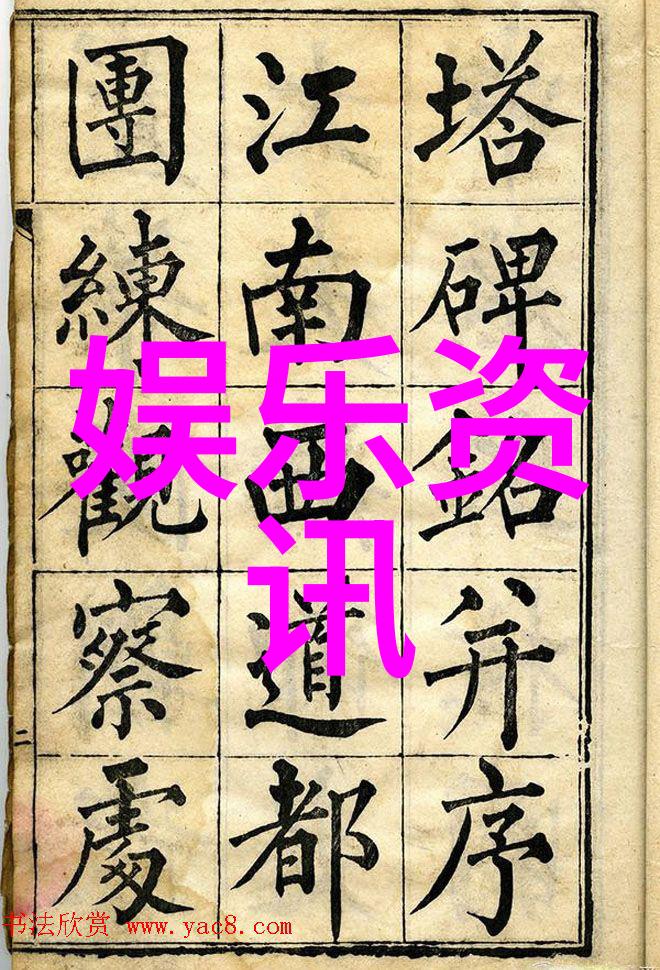 塔碑銘并序
江南西道都
團練觀察處
娱乐资讯
书法欣赏 www.yac8.com
二